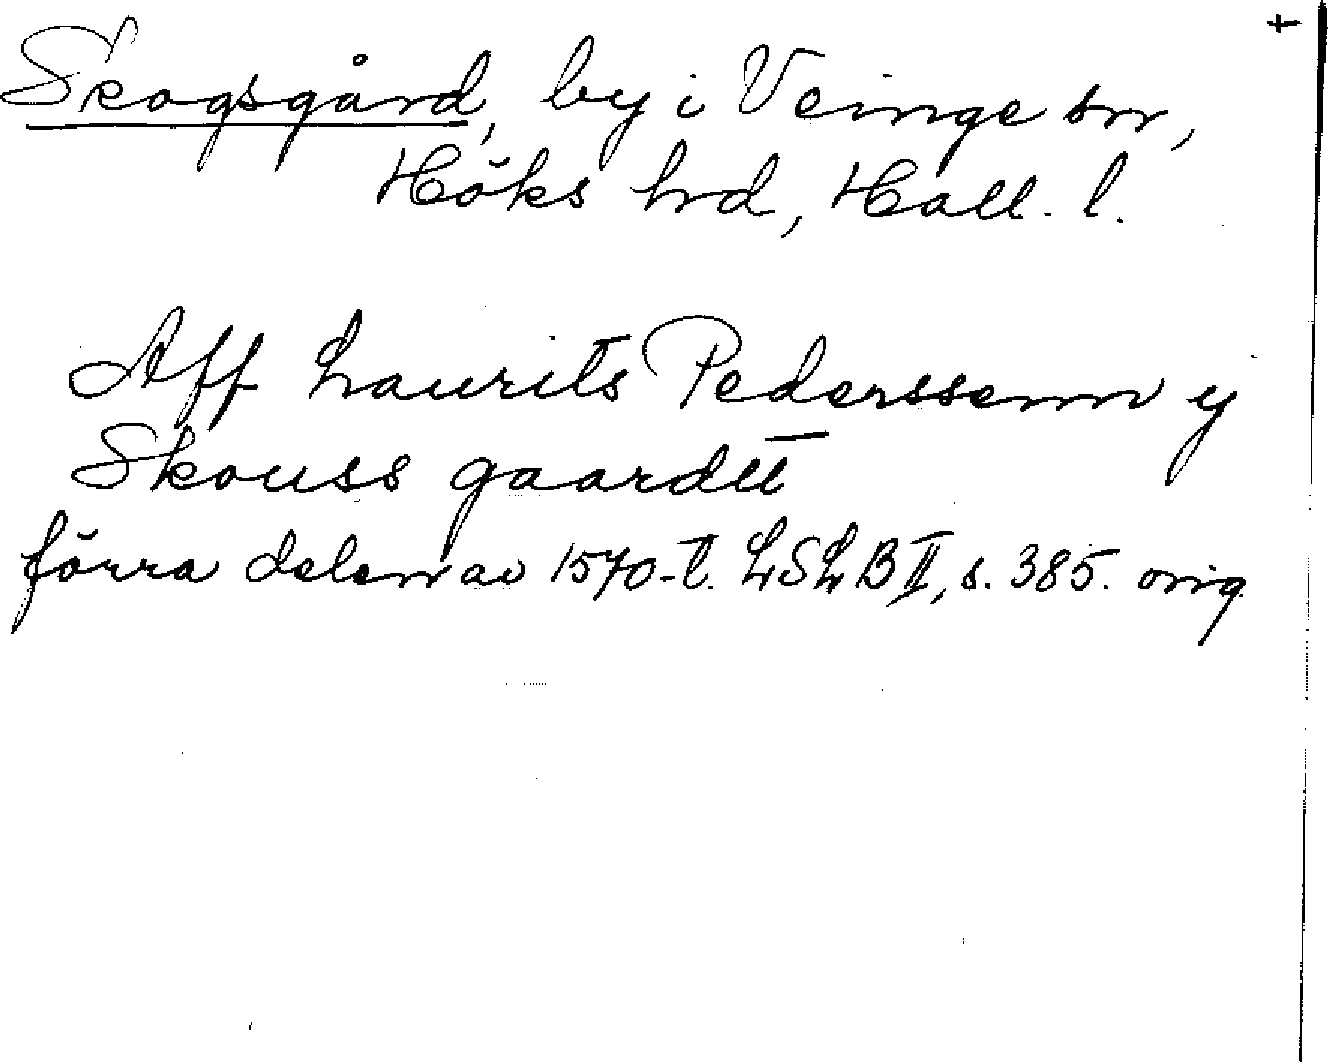 Skogsgård, by i Veinge sn,
Höks hd, Hall. l.
Aff Laurits Pederssenn ij
Skouss gaardtt
förra delen av 1570-t. LSLB II, s. 385. orig.